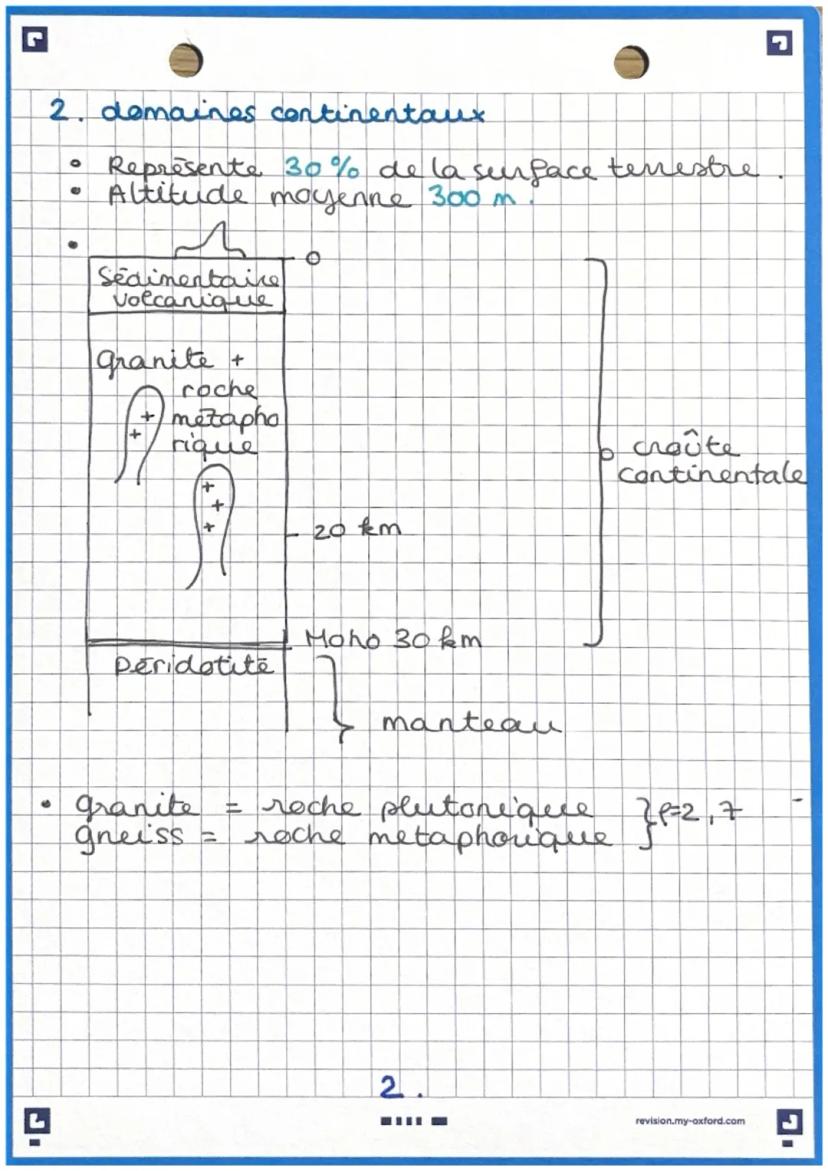 2. domaines continentaux
• Représente 30% de la surface terrestre.
• Altitude moyenne 300 m.
•
0
Sédimentaire
volcanique
granite +
roche
métapho
rique
+
+
+
+
+
20 km
croûte
continentale
Moho 30 km
Péridotite
manteau
• granite = roche plutonique } ρ=2,7
gneiss = roche metaphorique
2.
revision.my-oxford.com